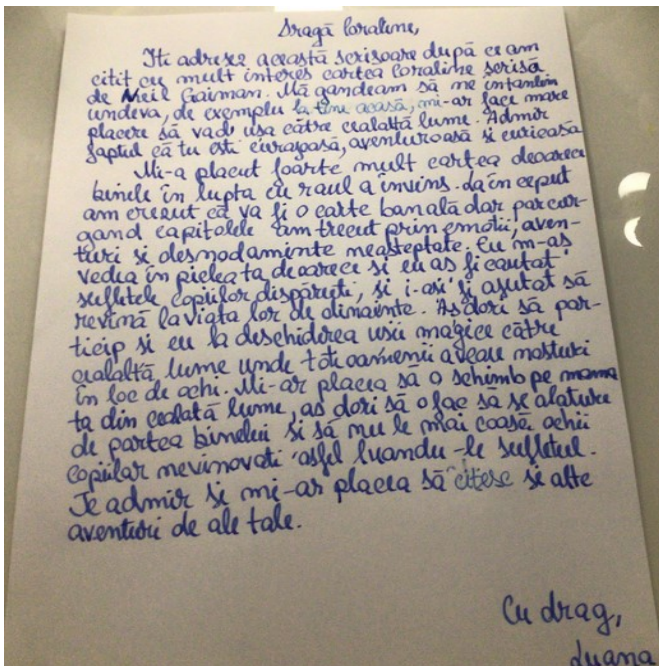 Dragă Coraline,
Iti adresez această scrisoare după ce am
citit cu mult interes cartea Coraline scrisă
de Neil Gaiman. Mă gandeam să ne intanlim
undeva, de exemplu la tine acasă, mi-ar face mare
placere să vad usa către cealaltă lume. Admir
faptul că tu esti curajoasă, aventuroasă si curioasă
Mi-a placut foarte mult cartea deoarece
binele în lupta cu raul a invins. La inceput
am crezut că va fi o carte banală dar parcur-
gand capitolele am trecut prin emotii, aven-
turi si desnodaminte neasteptate. Eu m-as
vedea in pielea ta deoarece si eu as fi cautat
sufletele copiilor dispăruti, si i-asi fi ajutat să
revină la viata lor de dinainte. As dori să par-
ticip si eu la deschiderea usii magice către
cealaltă lume unde toti oamenii aveau nasturi
în loc de ochi. Mi-ar placea să o schimb pe mama
ta din cealată lume, as dori să o fac să se alature
de partea binelui si să nu le mai coasă ochii
copiilor nevinovati asfel luandu-le sufletul.
Te admir si mi-ar placea să citesc si alte
aventuri de ale tale.
Cu drag,
Luana